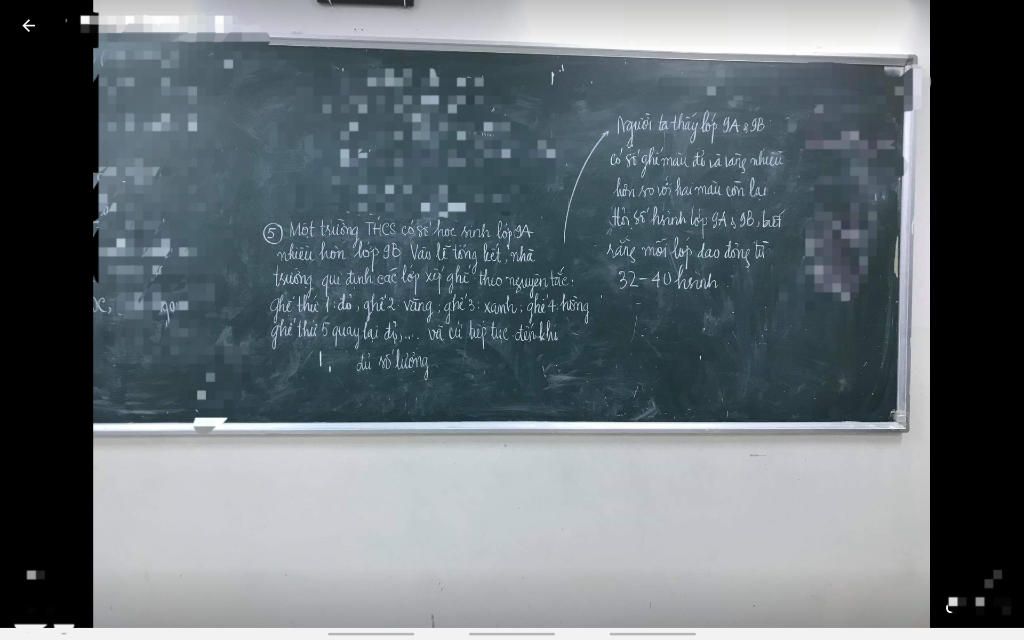 ⑤ Một trường THCS có số học sinh lớp 9A
nhiều hơn lớp 9B. Vào lễ tổng kết, nhà
trường qui định các lớp xếp ghế theo nguyên tắc:
ghế thứ 1: đỏ, ghế 2: vàng; ghế 3: xanh; ghế 4: hồng
ghế thứ 5 quay lại đỏ,... và cứ tiếp tục đến khi
đủ số lượng
Người ta thấy lớp 9A & 9B
có số ghế màu đỏ và vàng nhiều
hơn so với hai màu còn lại
Hỏi số hsinh lớp 9A & 9B, biết
rằng mỗi lớp dao động từ
32-40 hsinh.